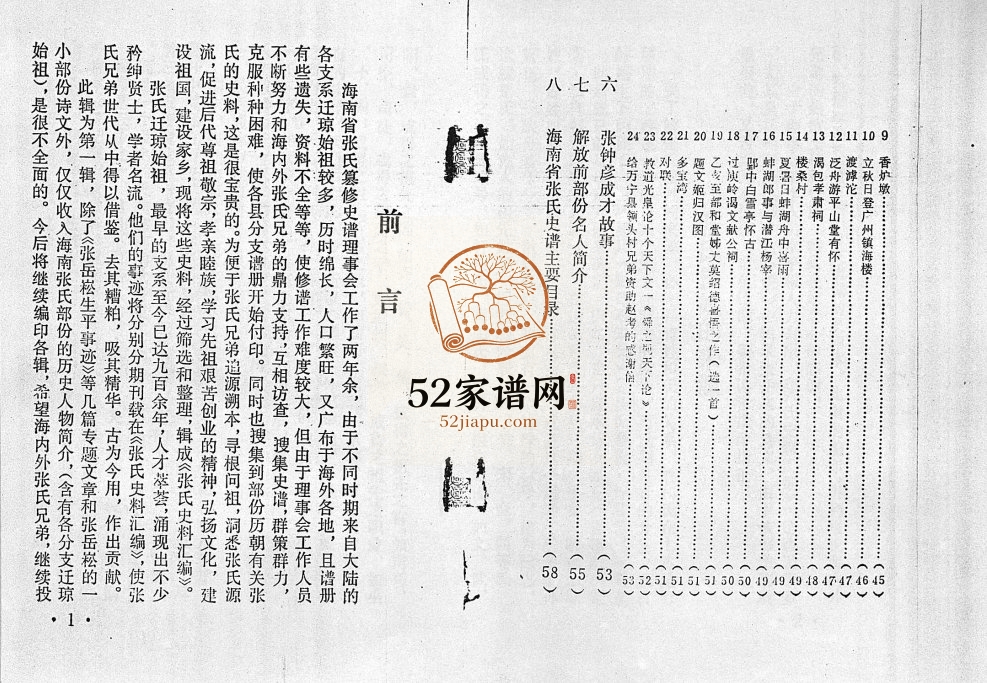 9 香炉墩………(45)
10 立秋日登广州镇海楼………(46)
11 渡滹沱………(47)
12 泛舟游平山堂有怀………(47)
13 谒包孝肃祠………(48)
14 楼桑村………(49)
15 夏署日蚌湖舟中喜雨………(49)
16 蚌湖郎事与潜江杨宰………(49)
17 郢中白雪亭怀古………(50)
18 过庾岭谒文献公祠………(50)
19 乙亥至都和堂姊丈莫绍德喜悟之作(选一首)………(51)
20 题文姬归汉图………(51)
21 多宝湾………(51)
22 对联………(51)
23 教道光皇论十个天下文一《舜之天下论》………(52)
24 给万宁县领头村兄弟资助赴考的感谢信………(53)
六 张钟彦成才故事………(53)
七 解放前部份名人简介………(55)
八 海南省张氏史谱主要目录………(58)
前言
海南省张氏篡修史谱理事会工作了两年余,由于不同时期来自大陆的
各支系迁琼始祖较多,历时绵长,人口繁旺,又广布于海外各地,且谱册
有些遗失,资料不全等等,使修谱工作难度较大,但由于理事会工作人员
不断努力和海内外张氏兄弟的鼎力支持,互相访查,搜集史谱,群策群力,
克服种种困难,使各县分支谱册开始付印。同时也搜集到部份历朝有关张
氏的史料,这是很宝贵的。为便于张氏兄弟追源溯本,寻根问祖,洞悉张氏源
流,促进后代尊祖敬宗,孝亲睦族,学习先祖艰苦创业的精神,弘扬文化,建
设祖国,建设家乡,现将这些史料,经过筛选和整理,辑成《张氏史料汇编》。
张氏迁琼始祖,最早的支系至今巳达九百余年,人才萃荟,涌现出不少
矜绅贤士,学者名流。他们的事迹将分别分期刊载在《张氏史料汇编》,使张
氏兄弟世代从中得以借鉴。去其糟粕,吸其精华。古为今用,作出贡献。
此辑为第一辑,除了《张岳崧生平事迹》等几篇专题文章和张岳崧的一
小部份诗文外,仅仅收入海南张氏部份的历史人物简介,(含有各分支迁琼
始祖),是很不全面的。今后将继续编印各辑,希望海内外张氏兄弟,继续投
·1·
52家谱网
52jiapu.com